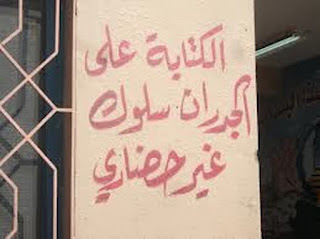 الكتابة على
الجدران سلوك
غير حضاري